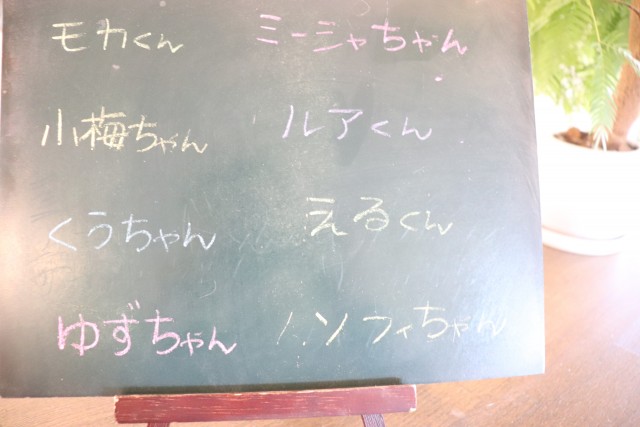 モカくん ミージャちゃん
小梅ちゃん ルアくん
くうちゃん えるくん
ゆずちゃん ソフィちゃん